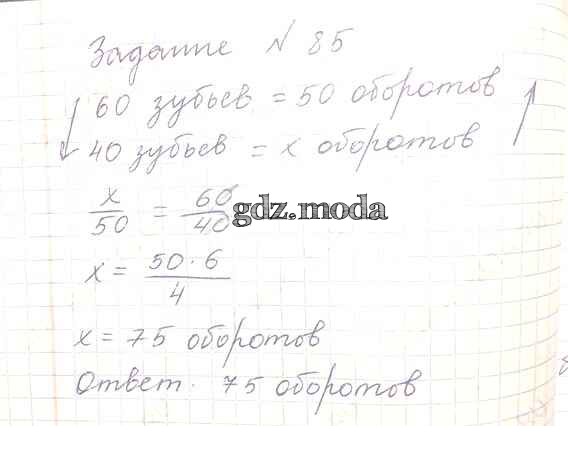 Задание № 85
60 зубьев = 50 оборотов
40 зубьев = x оборотов
x/50 = 60/40
gdz.moda
x = 50·6/4
x = 75 оборотов
Ответ. 75 оборотов